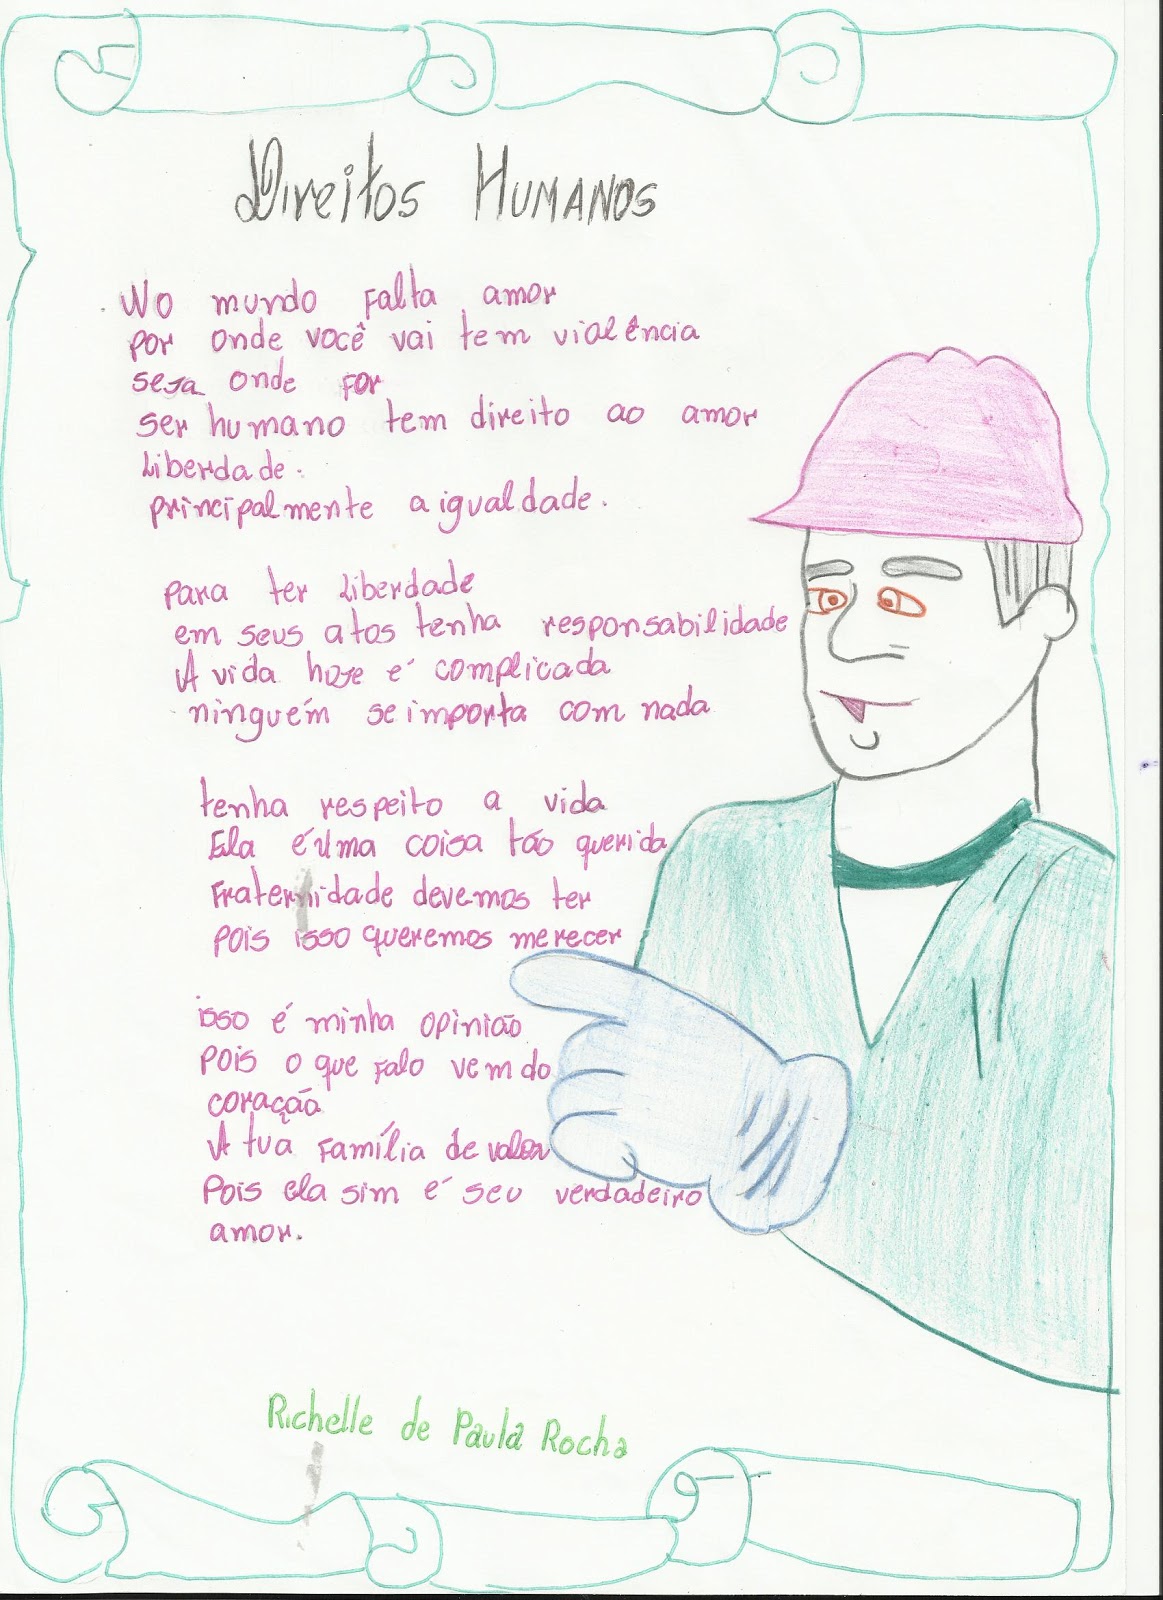 Direitos Humanos
No mundo falta amor
por onde você vai tem violência
seja onde for
ser humano tem direito ao amor
Liberdade.
principalmente a igualdade.
para ter liberdade
em seus atos tenha responsabilidade
A vida hoje é complicada
ninguém se importa com nada
tenha respeito a vida
Ela é uma coisa tão querida
Fraternidade devemos ter
pois isso queremos merecer
isso é minha opinião
pois o que falo vem do
coração
A tua família dê valor
Pois ela sim é seu verdadeiro
amor.
Richelle de Paula Rocha